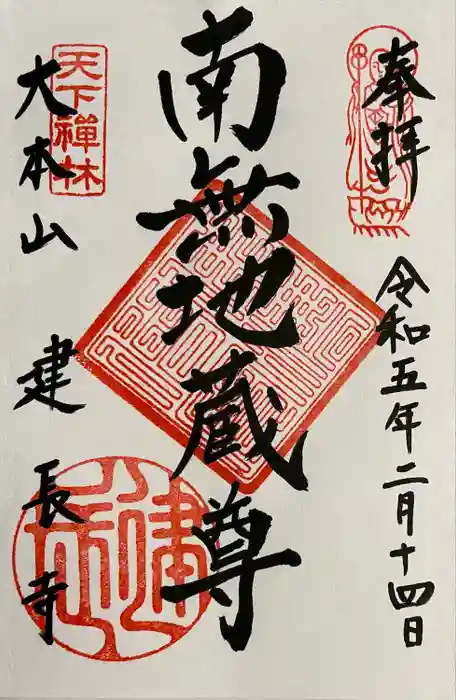 奉拝
令和五年二月十四日
南無地蔵尊
天下禅林
大本山 建長寺